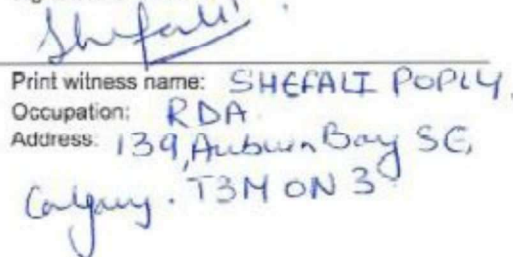 Shefali
Print witness name: SHEFALI POPLY.
Occupation: RDA
Address: 139, Auburn Bay SE,
Calgary. T3M 0N3